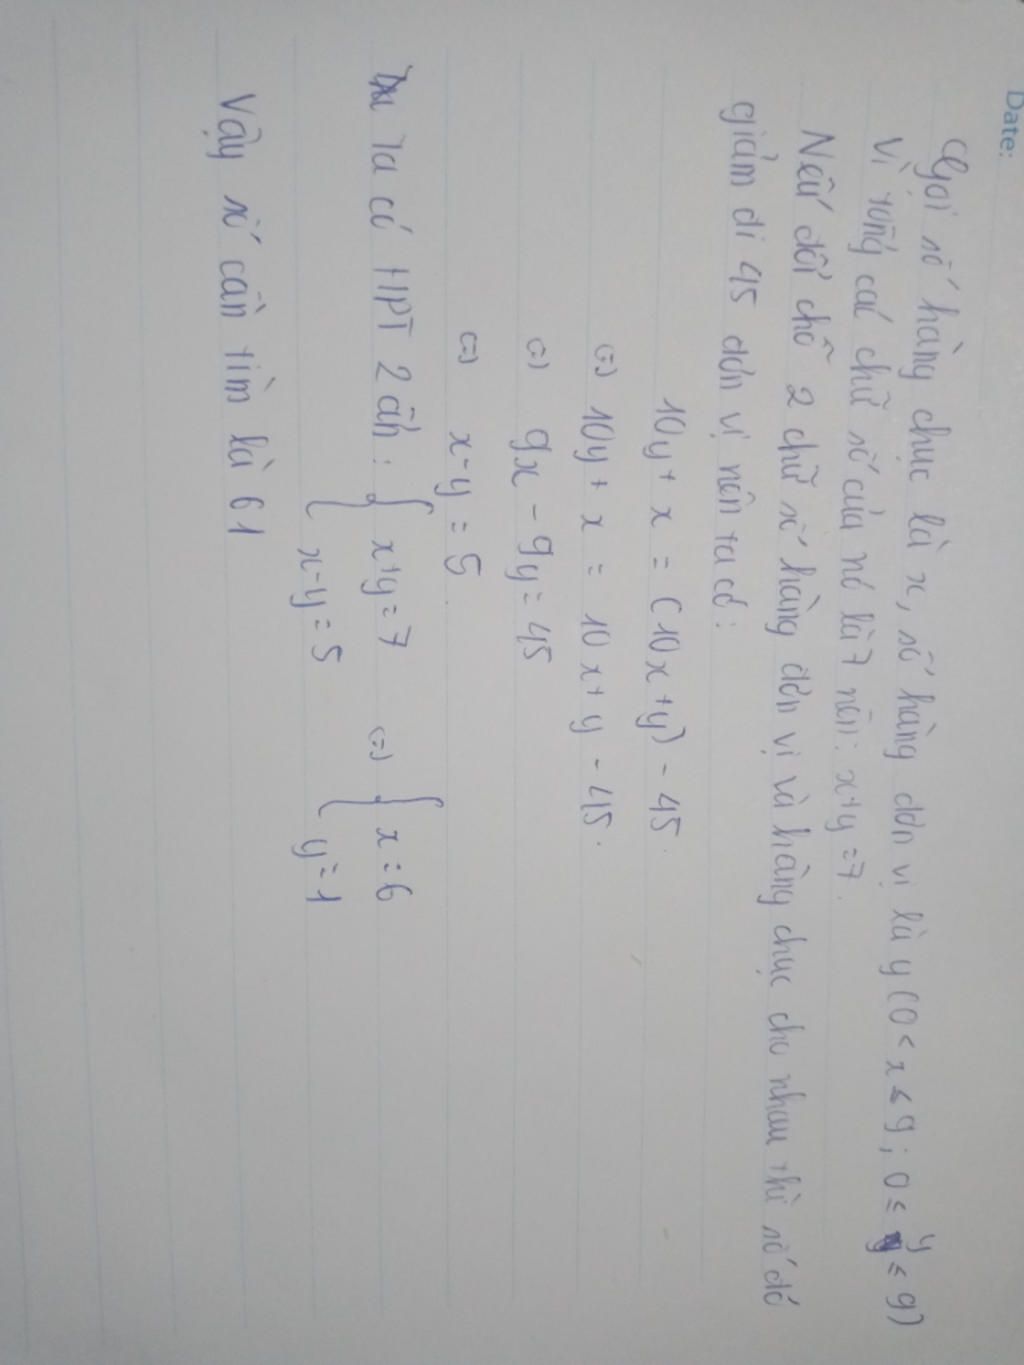 Date:
Gọi số hàng chục là x, số hàng đơn vị là y (0 < x ≤ 9; 0 ≤ y ≤ 9)
Vì tổng các chữ số của nó là 7 nên: x+y=7.
Nếu đổi chỗ 2 chữ số hàng đơn vị và hàng chục cho nhau thì số đó
giảm đi 45 đơn vị nên ta có:
10y + x = (10x+y) - 45.
(=) 10y + x = 10x + y - 45.
(=) 9x - 9y = 45
(=) x-y = 5.
Ta có HPT 2 ẩn: { x+y=7 (=) { x=6
{ x-y=5 { y=1
Vậy số cần tìm là 61